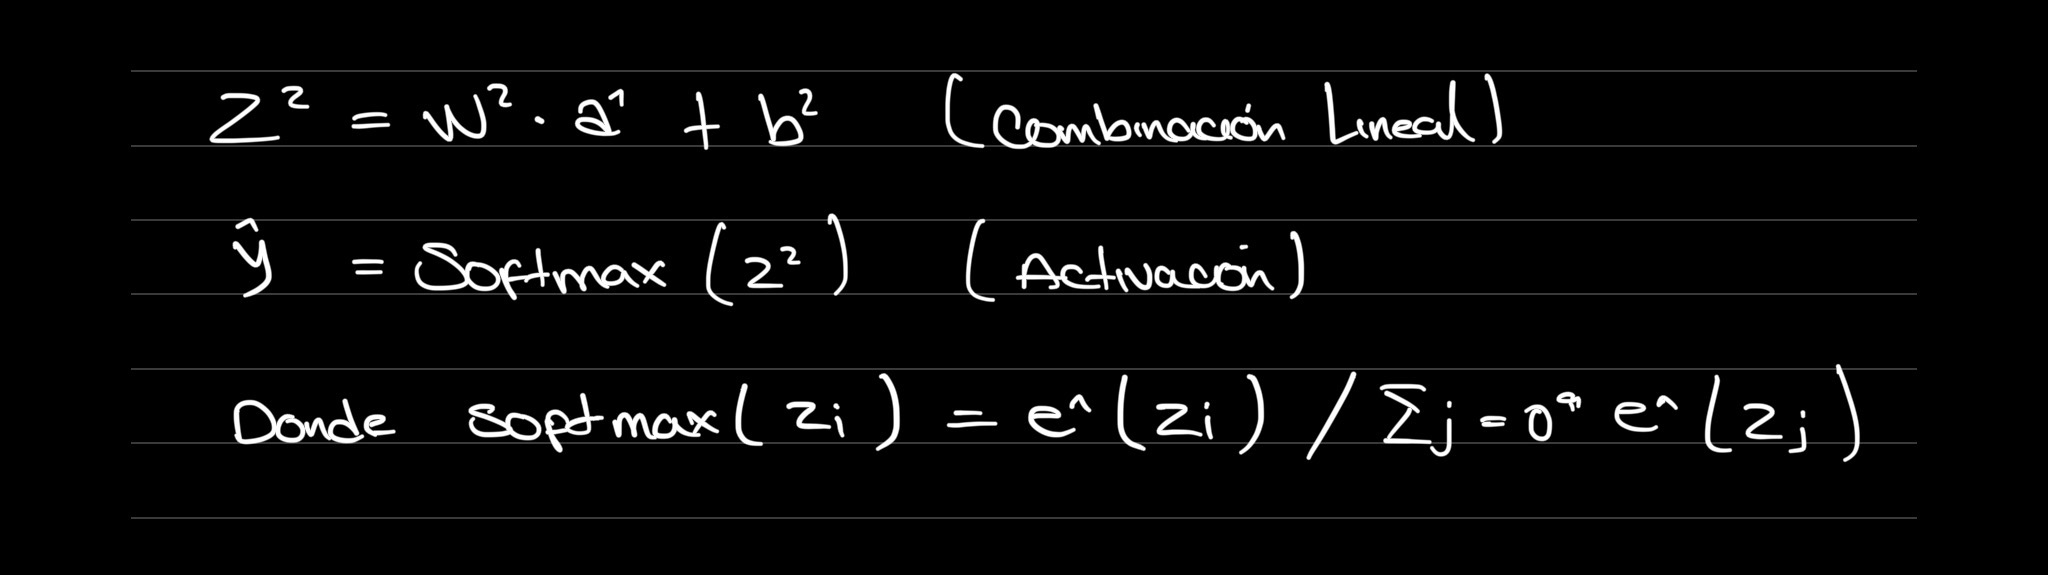 Z² = W² · a¹ + b² (Combinación Lineal)
ŷ = Softmax (z²) (Activación)
Donde softmax(zi) = e^(zi) / Σj=0⁹ e^(zj)